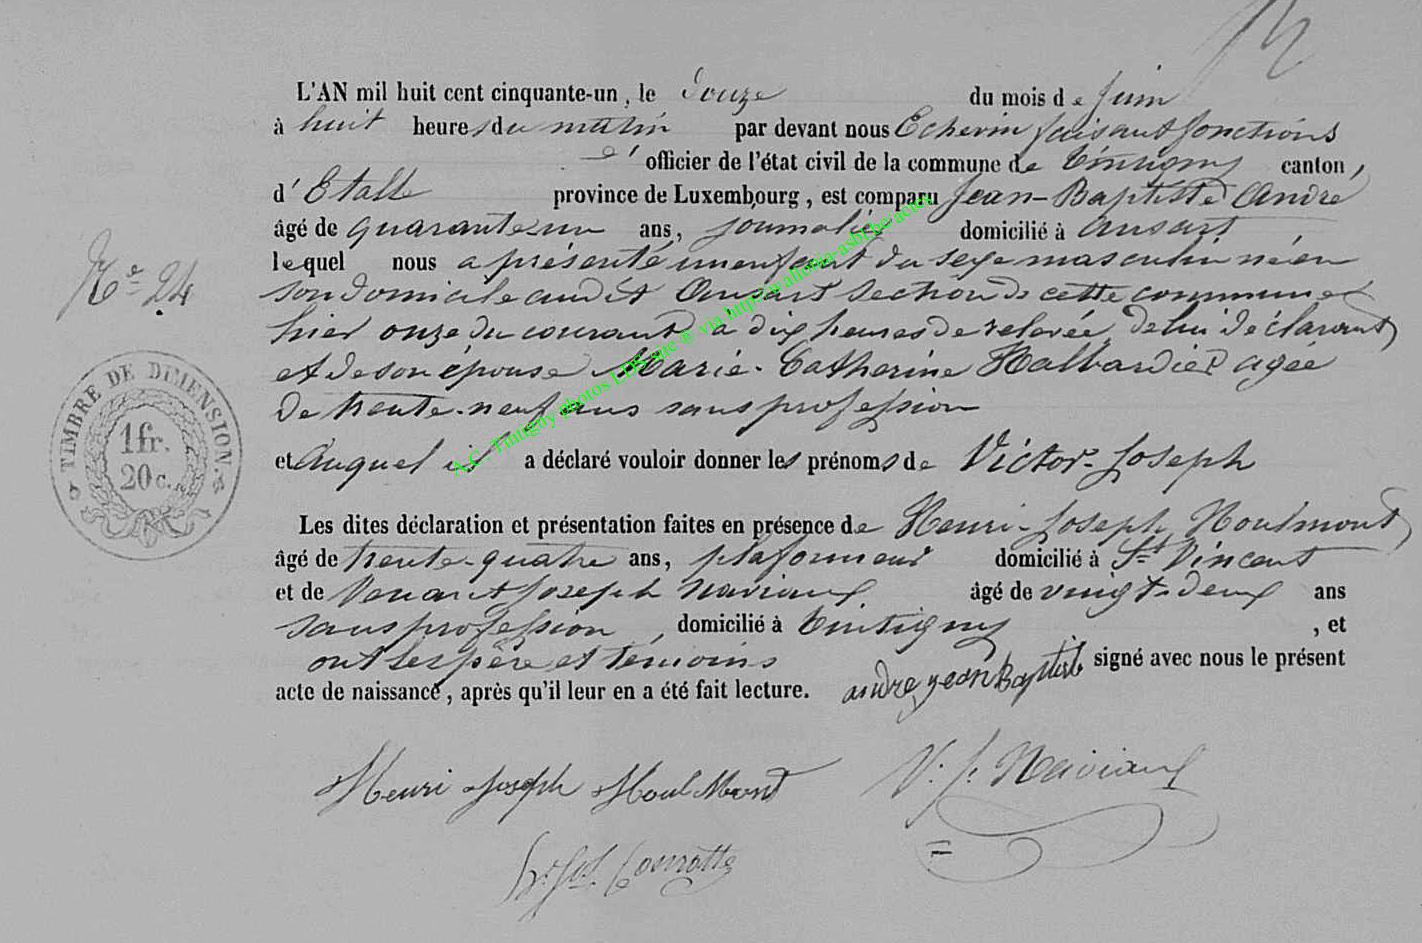 L'AN mil huit cent cinquante-un, le Douze du mois de Juin
à huit heures du matin par devant nous Echevin faisant fonctions
d' officier de l'état civil de la commune de Tintigny canton,
d' Etalle province de Luxembourg, est comparu Jean-Baptiste André
âgé de quarante un ans, journalier domicilié à Ansart
lequel nous a présenté un enfant du sexe masculin né en
son domicile audit Ansart section de cette commune
hier onze du courant à dix heures de relevée, de lui déclarant
N° 24
et de son épouse Marie-Catherine Halbardier agée
de trente-neuf ans sans profession
TIMBRE DE DIMENSION.
1 fr.
20 c.
et Auquel il a déclaré vouloir donner les prénoms de Victor-Joseph
Les dites déclaration et présentation faites en présence de Henri-Joseph Houlmont
âgé de trente-quatre ans, plafonneur domicilié à St Vincent
et de Venant Joseph Naviaux âgé de vingt-deux ans
sans profession, domicilié à Tintigny, et
ont les père et témoins signé avec nous le présent
acte de naissance, après qu'il leur en a été fait lecture. andre jean Baptiste
Henri Joseph Houlmont V. J. Naviaux
A.C. Tintigny Photos LDS mc @ via http://wallonia-asbl.be/actes